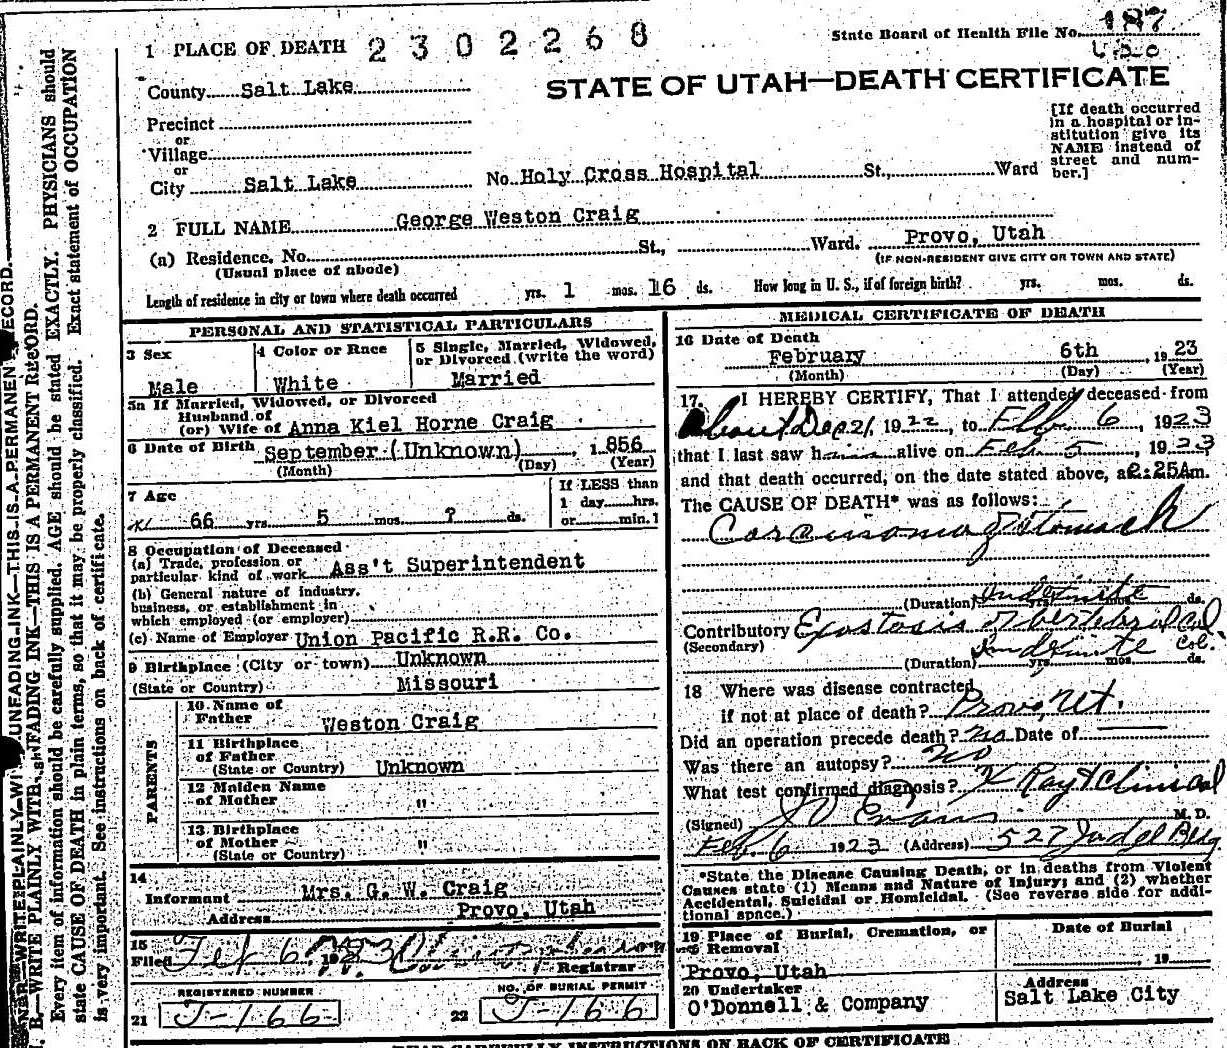 1 PLACE OF DEATH 2302268
State Board of Health File No. 187
County Salt Lake
STATE OF UTAH—DEATH CERTIFICATE
Precinct
or
Village
or
City Salt Lake No. Holy Cross Hospital St., Ward
[If death occurred
in a hospital or in-
stitution give its
NAME instead of
street and num-
ber.]
2 FULL NAME George Weston Craig
(a) Residence. No. St., Ward. Provo, Utah
(Usual place of abode) (IF NON-RESIDENT GIVE CITY OR TOWN AND STATE)
Length of residence in city or town where death occurred yrs. 1 mos. 16 ds. How long in U. S., if of foreign birth? yrs. mos. ds.
PERSONAL AND STATISTICAL PARTICULARS
3 Sex
Male
4 Color or Race
White
5 Single, Married, Widowed,
or Divorced (write the word)
Married
5a If Married, Widowed, or Divorced
Husband of
(or) Wife of Anna Kiel Horne Craig
6 Date of Birth September (Unknown), 1856
(Month) (Day) (Year)
7 Age
66 yrs. 5 mos. ? ds.
If LESS than
1 day hrs.
or min.
8 Occupation of Deceased
(a) Trade, profession or
particular kind of work Ass't Superintendent
(b) General nature of industry,
business, or establishment in
which employed (or employer)
(c) Name of Employer Union Pacific R.R. Co.
9 Birthplace (City or town) Unknown
(State or Country) Missouri
PARENTS
10 Name of
Father Weston Craig
11 Birthplace
of Father
(State or Country) Unknown
12 Maiden Name
of Mother "
13 Birthplace
of Mother "
(State or Country)
14
Informant Mrs. G. W. Craig
Address Provo, Utah
15
Filed Feb 6 1923
Registrar
REGISTERED NUMBER
21 J-166
NO. OF BURIAL PERMIT
22 J-166
MEDICAL CERTIFICATE OF DEATH
16 Date of Death
February 6th, 1923
(Month) (Day) (Year)
17. I HEREBY CERTIFY, That I attended deceased from
About Dec 21, 1922, to Feb. 6, 1923
that I last saw him alive on Feb. 5, 1923
and that death occurred, on the date stated above, at 2:25Am.
The CAUSE OF DEATH* was as follows:
Carcinoma of stomach
(Duration) Indefinite yrs. mos. ds.
Contributory Exostosis of vertebral Col.
(Secondary)
(Duration) Indefinite yrs. mos. ds.
18 Where was disease contracted
if not at place of death? Provo, Ut.
Did an operation precede death? No Date of
Was there an autopsy? No
What test confirmed diagnosis? X Ray & Clinical
(Signed) J D Evans M. D.
Feb. 6 1923 (Address) 527 Judge Bldg
*State the Disease Causing Death, or in deaths from Violent
Causes state (1) Means and Nature of Injury; and (2) whether
Accidental, Suicidal or Homicidal. (See reverse side for addi-
tional space.)
19 Place of Burial, Cremation, or
Removal
Provo, Utah
Date of Burial
, 19
20 Undertaker
O'Donnell & Company
Address
Salt Lake City
READ CAREFULLY INSTRUCTIONS ON BACK OF CERTIFICATE
B.—WRITE PLAINLY WITH UNFADING INK—THIS IS A PERMANENT RECORD.
Every item of information should be carefully supplied. AGE should be stated EXACTLY. PHYSICIANS should
state CAUSE OF DEATH in plain terms, so that it may be properly classified. Exact statement of OCCUPATION
is very important. See instructions on back of certificate.